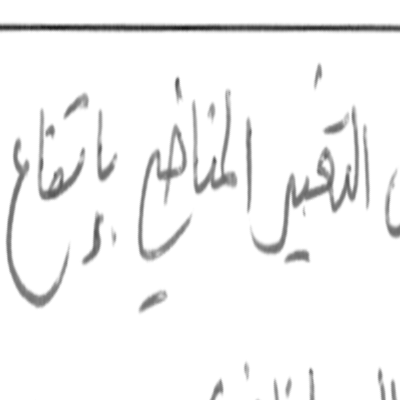 التغير المناخي بإرتفاع